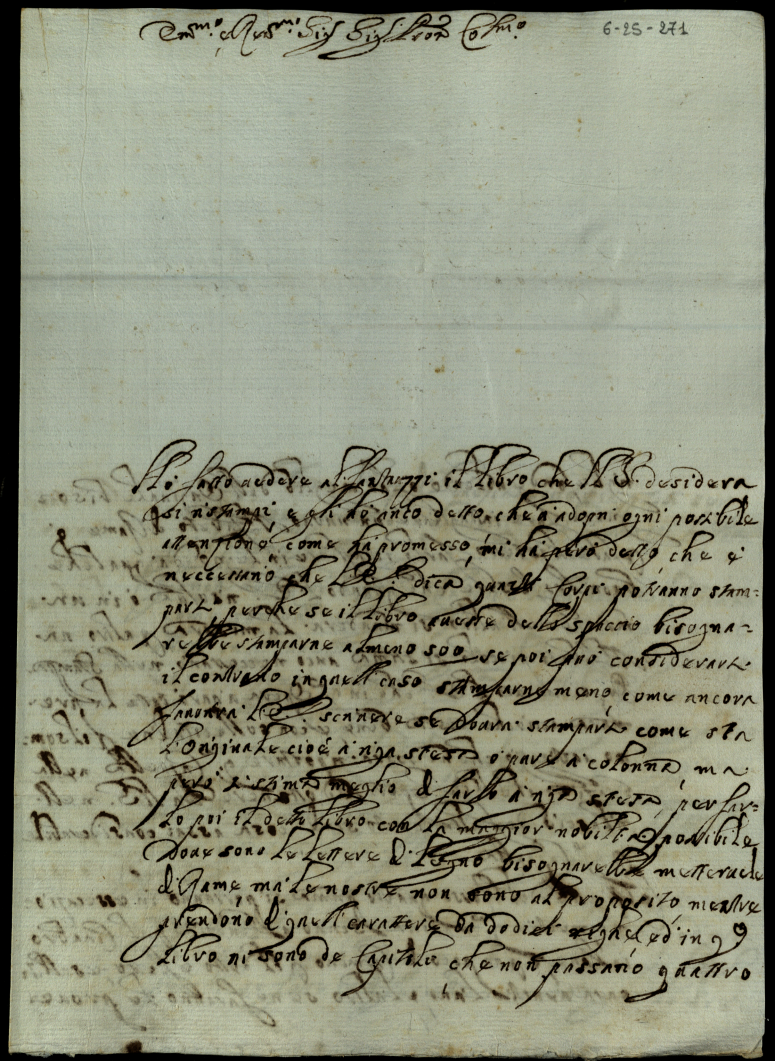 Em.mo e Rev.mo Sig.r Sig.r Pron Col.mo
6-25-271
Ho fatto vedere al il libro che V.S. desidera
si ristampi e gli hò anco detto che adopri ogni possibile
attenzione come hà promesso, mi hà però detto che è
neccessario che V.S. dica quante Copie potranno stam=
parsi perche se il libro avesse dello spaccio bisogna=
rebbe stamparne almeno 500 se poi può considerarsi
il contrario in quell caso stamparne meno come ancora
favorirà V.S. scrivere se dovrà stamparsi come sta
l'originale cioè a riga stesa ò pare à colonna, ma
però si stima meglio di farlo à riga stesa, per far=
lo poi il detto libro con la maggior nobiltà possibile
dove sono le lettere di legno bisognarebbe metterle
di Rame ma le nostre non sono al proposito mentre
prendono di quell carattere da dodici righe, ed in q.o
libro vi sono de Capitoli che non passano quattro